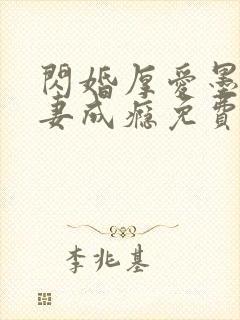 閃婚厚愛墨
妻成癮免費
李兆基